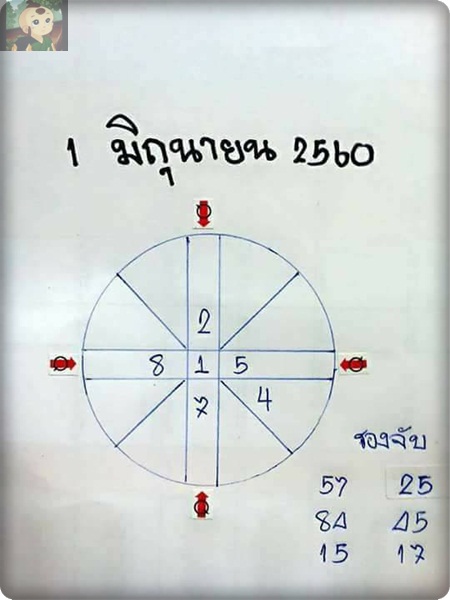 1 มิถุนายน 2560
2
8 1 5
7 4
รองจับ
57 25
84 45
15 17